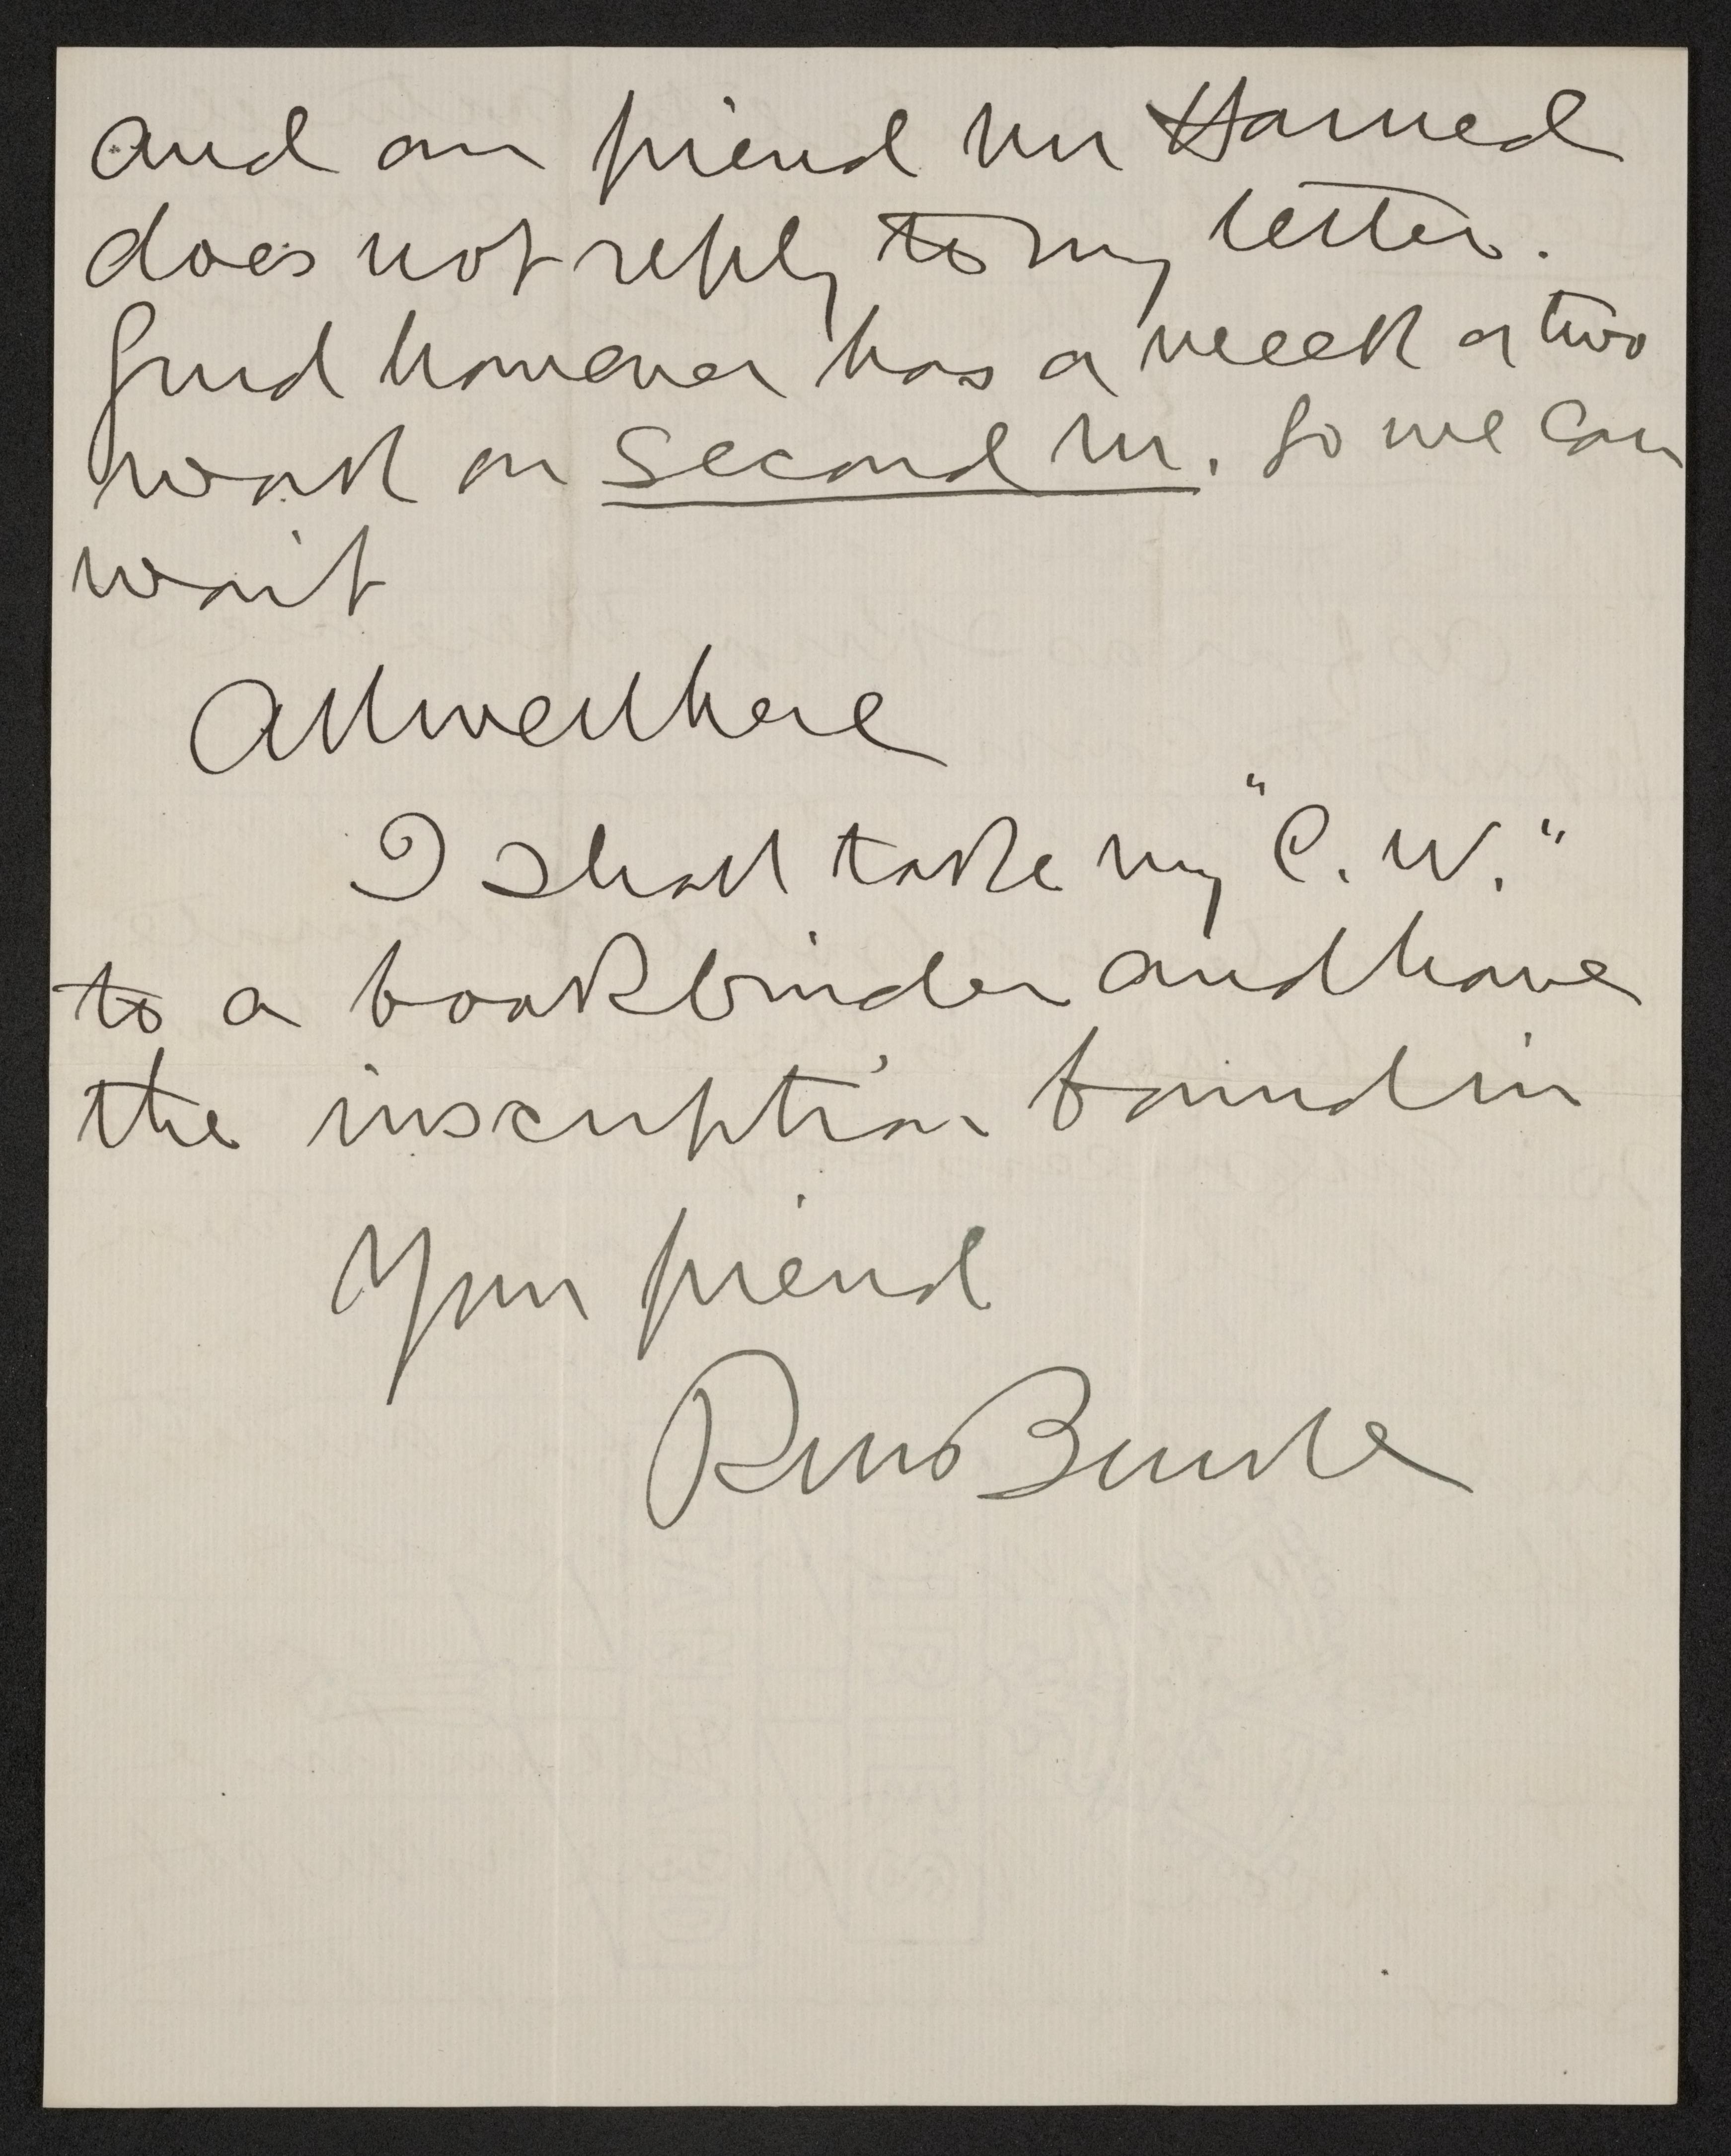 and our friend Mr Harned
does not reply to my letters.
Gurd however has a week or two
work on second m. so we can
wait
All well here
I shall take my "C. W."
to a bookbinder and have
the inscription bound in
Your friend
RM Bucke